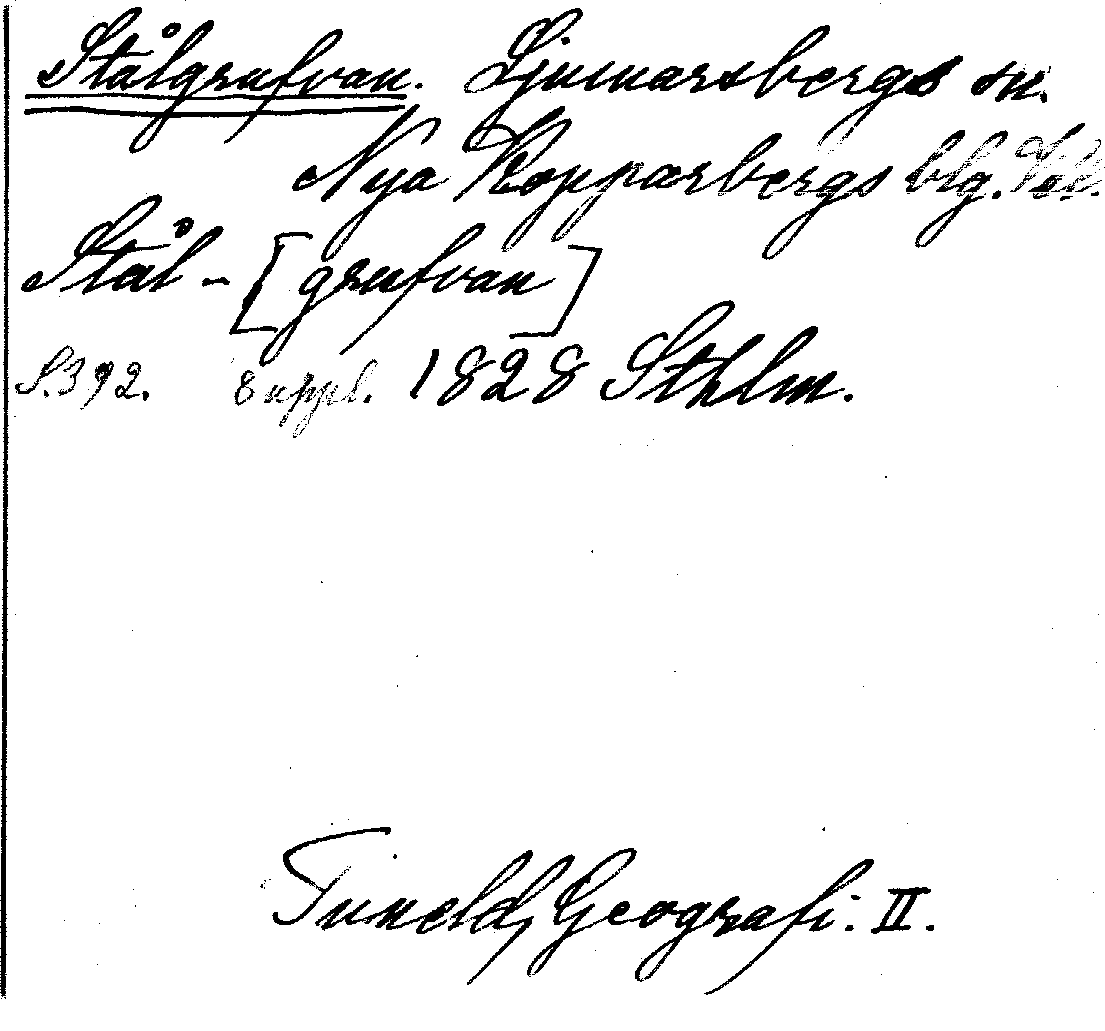 Stålgrufvan. Ljusnarsbergs sn.
Nya Kopparbergs blg.
Stål - [grufvan]
S. 392. 8 uppl. 1828 Sthlm.
Tuneld, Geografi. II.